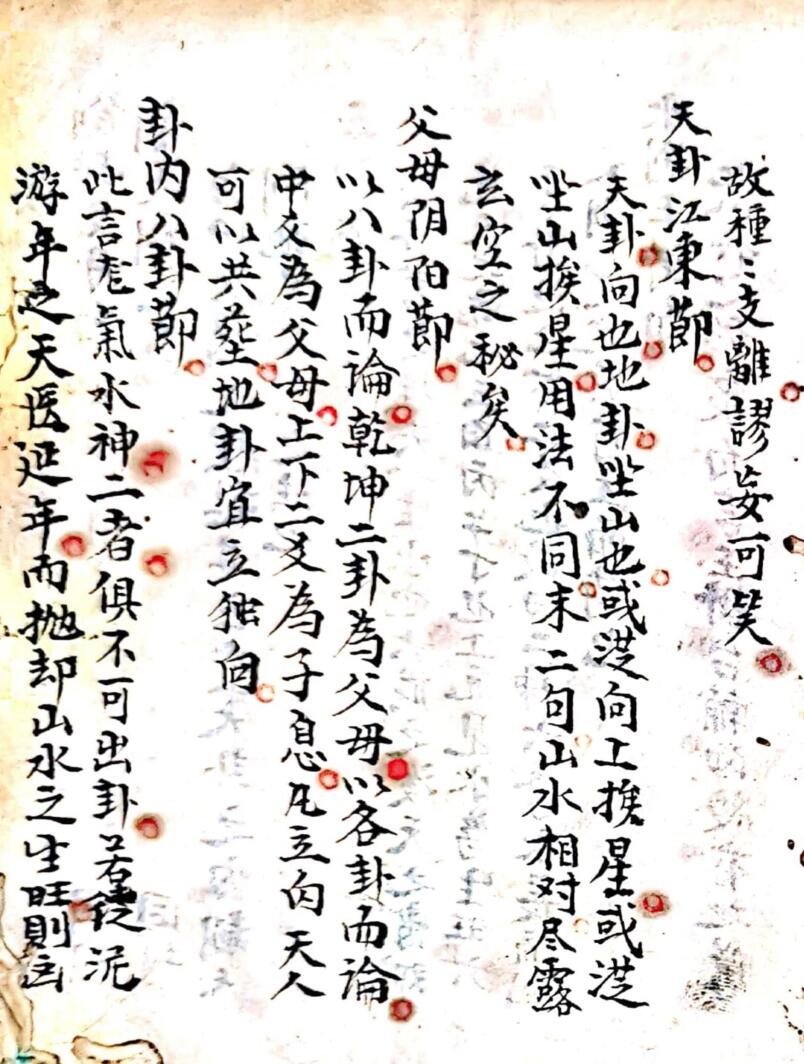 故種〻支離謬妄可笑
天卦江東節
天卦向也地卦坐山也或從向上挨星或從
坐山挨星用法不同末二句山水相对尽露
玄空之秘矣
父母阴阳節
以八卦而論乾坤二卦為父母以各卦而論
中爻為父母上下二爻為子息凡立向天人
可以共茔地卦宜立独向
卦内八卦節
此言龙氣水神二者俱不可出卦若泥
游年之天医延年而抛却山水之生旺則